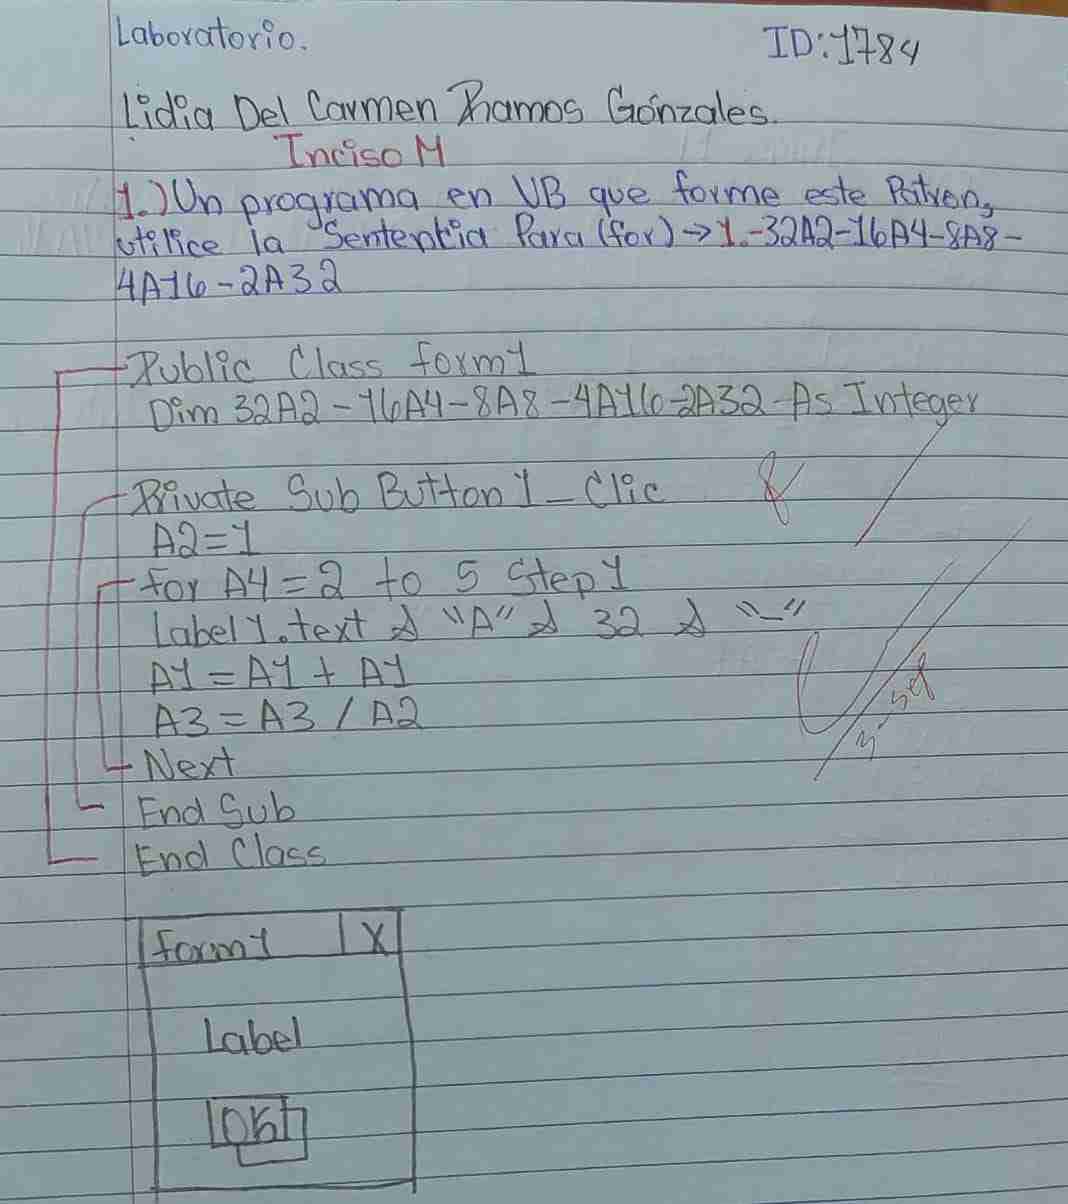 Laboratorio.
ID:1784
Lidia Del Carmen Ramos Gónzales.
Inciso M
1.) Un programa en VB que forme este Patron,
utilice la Sententia Para (for) → 1.-32A2-16A4-8A8-
4A16-2A32
Public Class form1
Dim 32A2-16A4-8A8-4A16-2A32-As Integer
Private Sub Button1_Clic
A2=1
for A4=2 to 5 Step1
Label1.text & "A" & 32 & "-"
A1=A1+A1
A3=A3/A2
Next
End Sub
End Class
form1 X
Label